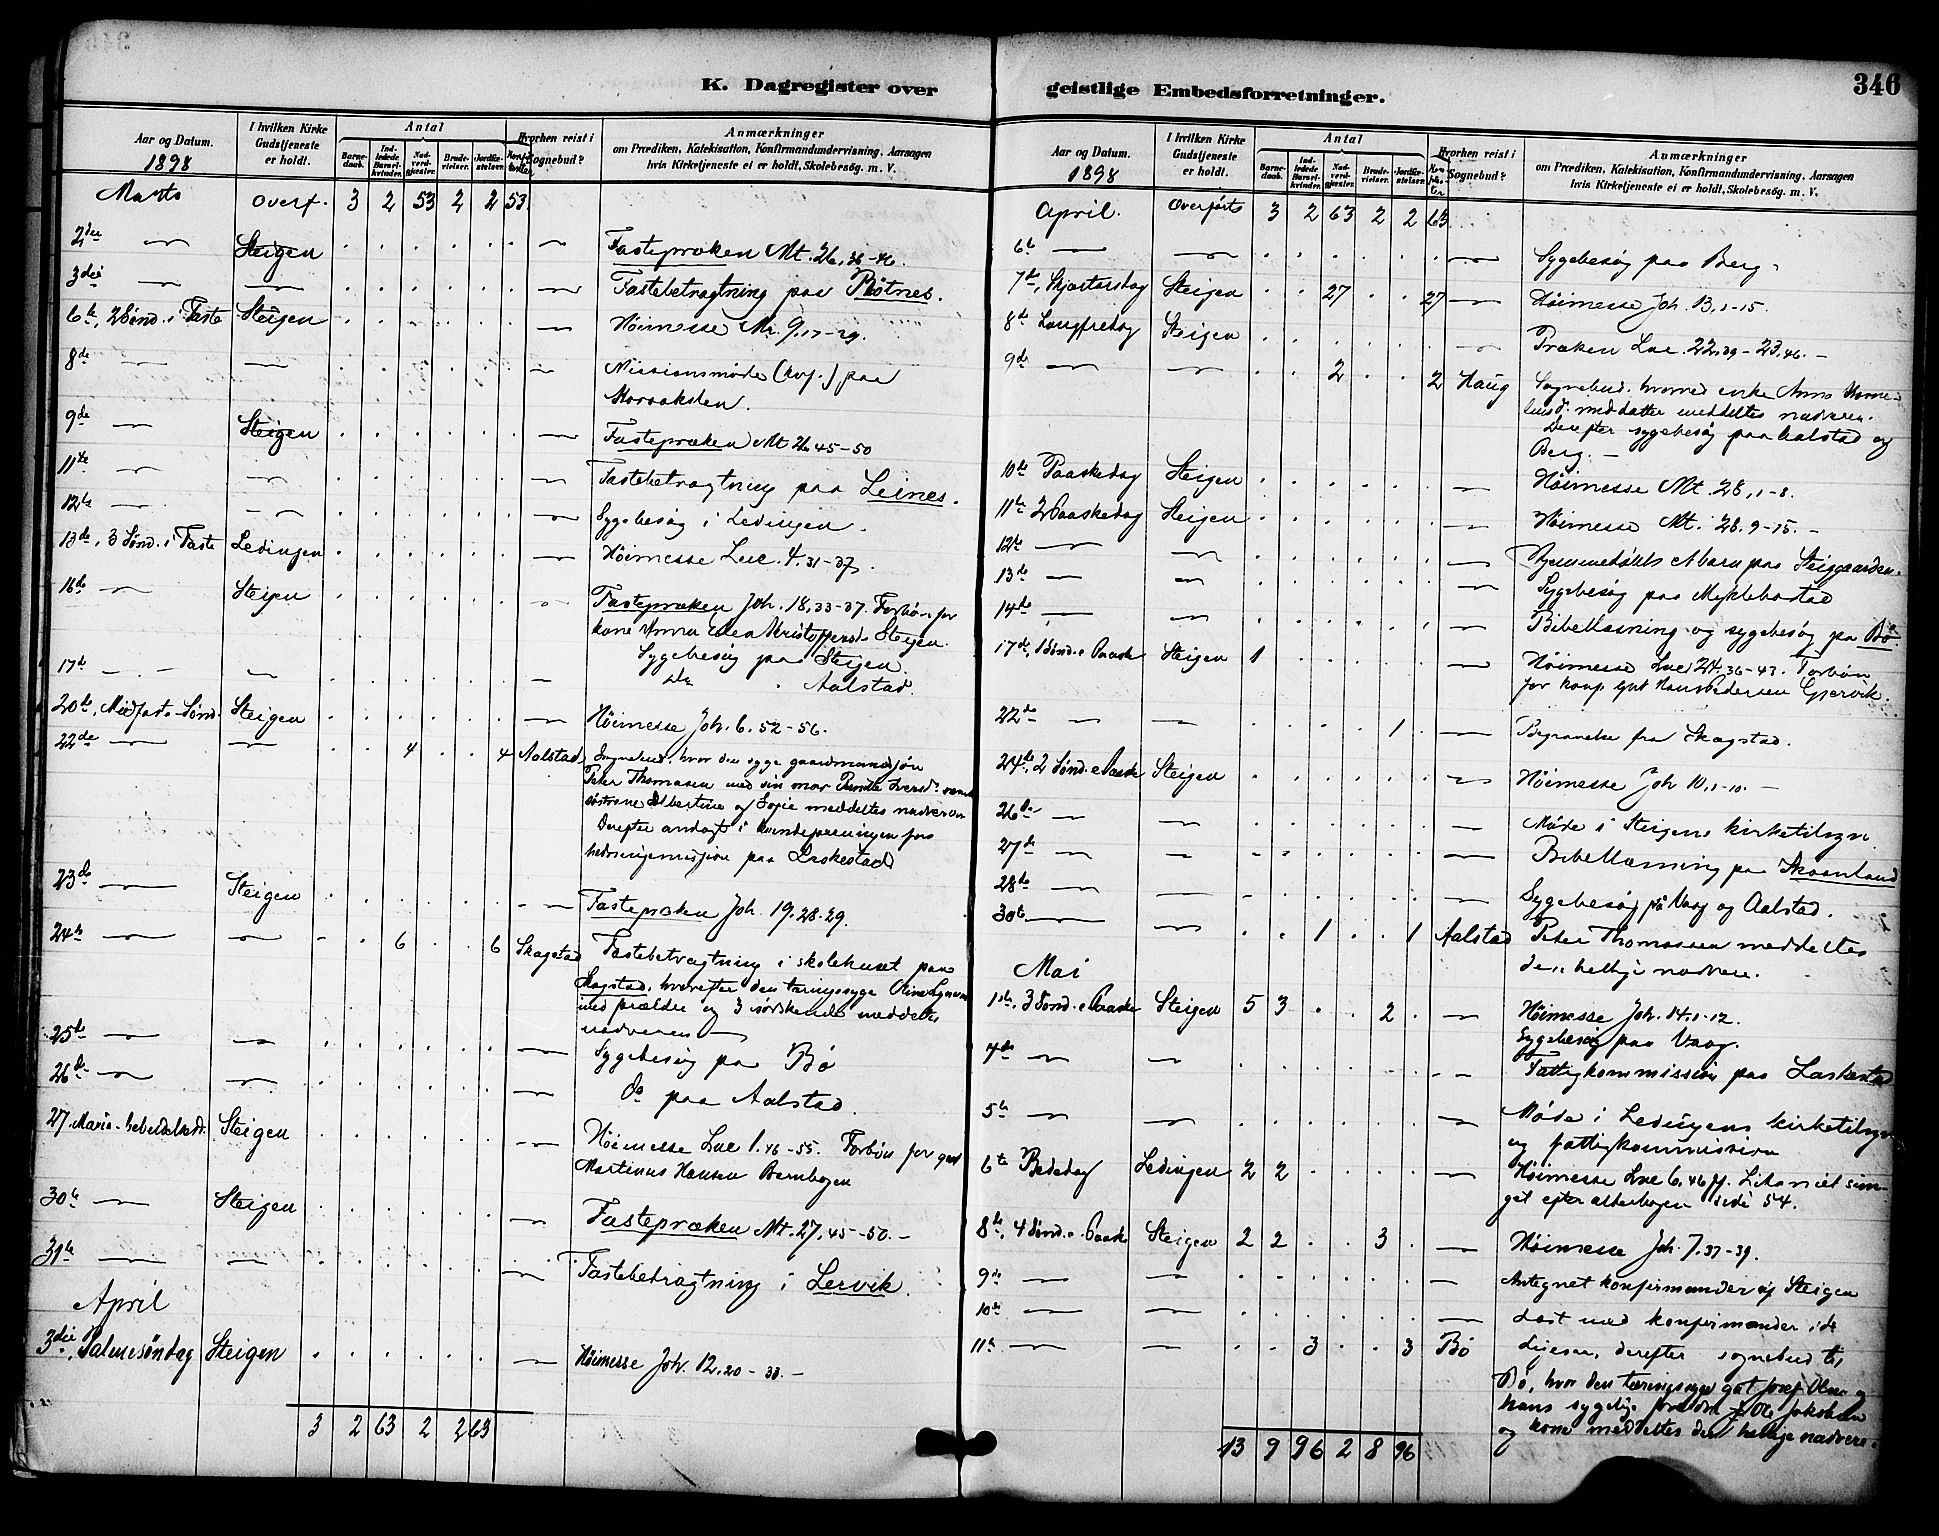 346
K. Dagregister over geistlige Embedsforretninger.
Aar og Datum.
1898
I hvilken Kirke
Gudstjeneste
er holdt.
Antal
Barne-
daab.
Ind-
ledede
Barsel-
kvinder.
Nad-
verd-
gjester.
Brude-
vielser.
Jordfæ-
stelser.
Hvorhen reist i
Sognebud?
Anmærkninger
om Prædiken, Katekisation, Konfirmandundervisning, Aarsagen
hvis Kirketjeneste ei er holdt, Skolebesög. m. V.
Marts overf. 3 2 53 2 2 53
2den Steigen Fastepræken Mt. 26, 36-46.
3die Fastebetragtning paa Røtnes.
6te, 2 Sønd. i Faste Steigen Høimesse Mr. 9.17-29.
8de Missionsmøde (Avf.) paa
9de Steigen Fastepræken Mt 26 45-50
11te Fastebetragtning paa Leines.
12te Sygebesøg i Ledingen.
13de, 3 Sønd. i Faste Ledingen Høimesse Luc. 4.31-37.
16de Steigen Fastepræken Joh. 18,33-37. Forbøn for
kone Anna Kristoffersd. Steigen.
Sygebesøg paa Steigen.
17de Aalstad.
20de, Midfaste-Sønd. Steigen Høimesse Joh. 6. 52-56.
22de 4 4 Aalstad Sognebud, hvor den syge gaardmandsøn
Peter Thomassen med sin mor
søstrene Albertine og Sofie meddeltes nadveren
Derefter andagt i kvindeforeningen for
hedningemissjon paa Laskestad
23de Steigen Fastepræken Joh. 19.28-29.
24de 6 6 Skagstad Fastebetragtning i skolehuset paa
Skagstad, hvorefter den tæringssyge Oline
med forældre og 3 søskende meddeltes
nadveren
25de Sygebesøg paa Bø
26de Do paa Aalstad.
27 Mariæ bebudelsesd. Steigen Høimesse Luc 1.46-55. Forbøn for gut
Martinus Hansen Bernbogen
30te Steigen Fastepræken Mt. 27.45-50.-
31te Fastebetragtning i Lervik.
April
3die, Palmesøndag Steigen Høimesse Joh. 12.20-33.-
3 2 63 2 2 63
Aar og Datum.
1898
I hvilken Kirke
Gudstjeneste
er holdt.
Antal
Barne-
daab.
Ind-
ledede
Barsel-
kvinder.
Nad-
verd-
gjester.
Brude-
vielser.
Jordfæ-
stelser.
Hvorhen reist i
Sognebud?
Anmærkninger
om Prædiken, Katekisation, Konfirmandundervisning, Aarsagen
hvis Kirketjeneste ei er holdt, Skolebesög. m. V.
April. Overførts 3 2 63 2 2 63
6te Sygebesøg paa Berg.
7de, Skjærtorsdag Steigen 27 27 Høimesse Joh. 13,1-15.
8de Langfredag Steigen Præken Luc. 22.39-23.46.-
9de 2 2 Haug Sognebud, hvorved enke Anna
med datter meddeltes nadveren.
Derefter sygebesøg paa Aalstad og
Berg.-
10de Paaskedag Steigen Høimesse Mt. 28,1-8.
11te 2 Paaskedag Steigen Høimesse Mt. 28.9-15.-
12te Hjemmedøbte barn paa Steiggaarden.
13de Sygebesøg paa Myklebostad
14de Bibellæsning og sygebesøg pa Bø
17de, 1 Sønd. e. Paaske Steigen 1 Høimesse Luc 24.36-43. Forbøn
for konf. gut Hans Pedersen Gjærvik.
22de 1 Begravelse fra Skagstad.
24de, 2 Sønd. e. Paaske Steigen Høimesse Joh 10.1-10.-
26de Møde i Steigens kirketilsyn
27de Bibellæsning pa Skaanland
28de Sygebesøg på Vaag og Aalstad.
30te 1 1 Aalstad Peter Thomassen meddeltes
den hellige nadvere.
Mai
1ste, 3 Sønd. e. Paaske Steigen 5 3 2 Høimesse Joh. 14.1-12.
Sygebesøg paa Vaag.
4de Fattigkommission paa Laskestad
5te Møde i Ledingens kirketilsyn
og fattigkommission
6te Bededag Ledingen 2 2 Høimesse Luc 6.46 ff. Litaniet sun-
get efter alterbogen side 54.
8de, 4 Sønd. e. Paaske Steigen 2 2 3 Høimesse Joh. 7.37-39.
9de Antegnet konfirmander af Steigen
10de Læst med konfirmander i de
11te 3 3 Bø derefter sognebud til
Bø, hvor den tæringssyge gut Josef Olsen og
hans sygelige Ole Jakobsen
og kone meddeltes den hellige nadvere.
13 9 96 2 8 96